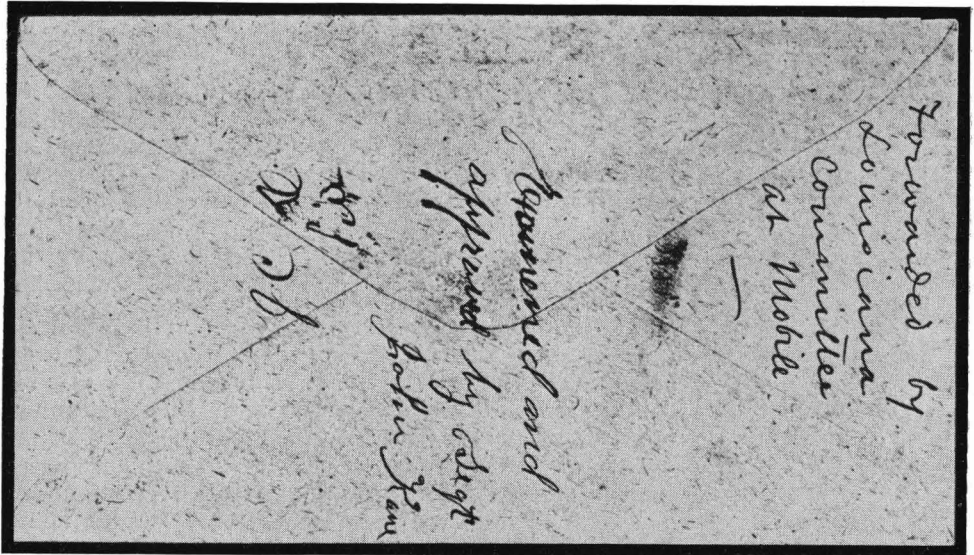 Forwarded by
Louisiana
Committee
at Mobile
—
Examined and
approved by Segt
John Kane